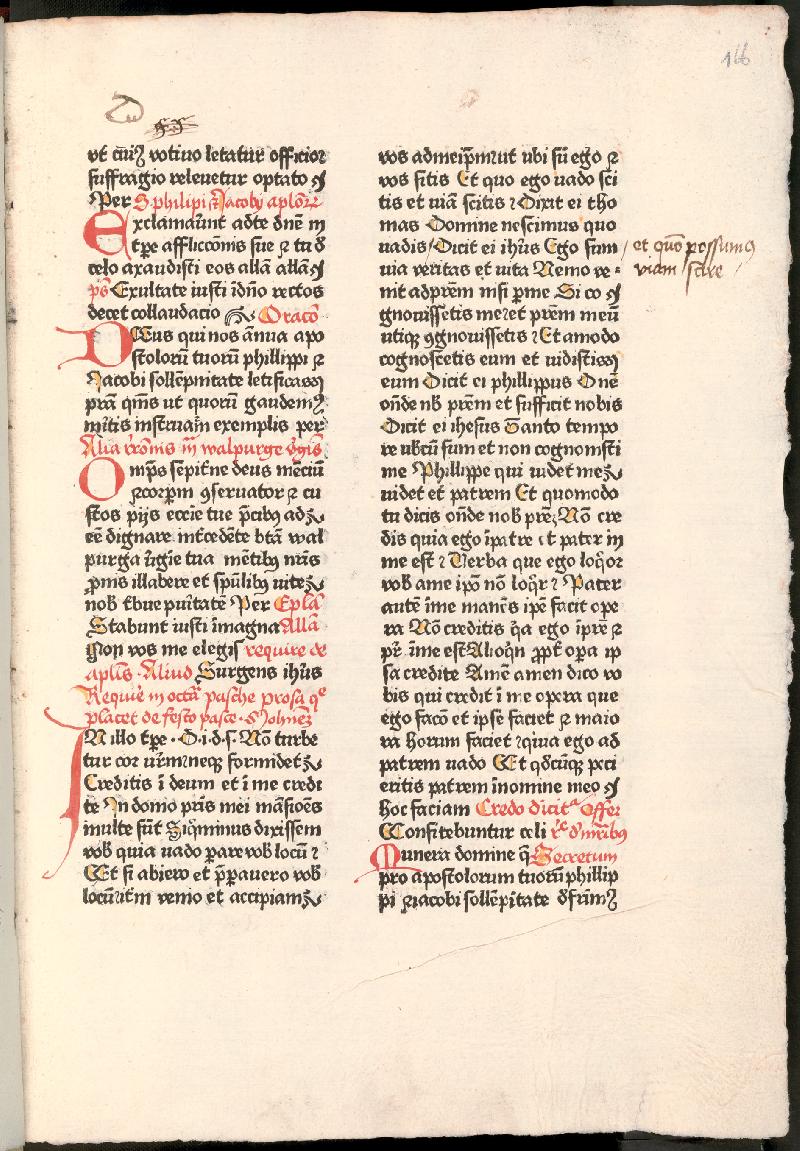 166
vt cuiꝰ votiuo letatur officioꝛ
suffragio releuetur optato
Per S philipi ⁊ Jacobi aplõꝝ
Exclamauñt adte dnẽ in
tꝑe afflicc̃onis sue ⁊ tu d̃
celo axaudisti eos allã allãꝭ
ps̃ Exultate iusti ĩdño rectos
decet collaudacio Oracõ
DEus qui nos ãnua apo
stolorũ tuorũ phillippi ⁊
Jacobi sollẽpnitate letificas
p̃stã qm̃s ut quorũ gaudemꝰ
mitis instruam̃ exemplis per
Alia r̃c̃onis ĩn walpurge v̓gĩs
Omp̃s sepit̃ne deus mẽciũ
⁊corpm ꝯseruator ⁊ cu
stos pijs eccĩe tue p̃cibꝰ ad
eẽ dignare int̃cedẽte btã wal
purga v̓rgĩe tua mẽtibꝰ nr̃is
ꝓms illabere et sp̃ulibꝰ vite
nob̃ t̃bue puĩtatẽ Per Epl̃a
Stabunt iusti ĩmagna Allã
Non vos me elegis require de
aplis̃ Aliud Surgens ih̃us
Requir̃e in octã pasche prosa q̃
placet de festo pasce S Johnẽꝫ
IN illo tꝑe · D·i·d·s· Nõ turbe
tur cor ur̃m neqꝫ formidet
Creditis ĩ deum et ĩ me credi
te In domo pr̃is mei mãsiões
multe sũt Siq̃minus dixissem
vob̃ quia uado ꝑare vob̃ locũ ⁊
Et si abiero et p̃ꝑauero vob̃
locũ it̃m venio et accipiam
vos admeip̃m ut ubi sũ ego ⁊
vos sitis Et quo ego uado sci
tis et uiã scitis ⁊ Dixit ei tho
mas Domine nescimus quo
uadis / Dicit ei ih̃us Ego sum
et quõ possumꝰ
viam scire
uia veritas et uita Nemo ve
nit adpr̃em nisi ꝑme Si co
gnouissetis me ⁊et pr̃em meũ
utiqꝫ ꝯgnouissetis ⁊ Et amodo
cognoscetis eum et uidistis
eum Dicit ei phillippus Dnẽ
oñde nb̃ pr̃em et sufficit nobis
Dicit ei ihesus Tanto tempo
re ubcũ sum et non cognouisti
me Phillippe qui uidet me
uidet et patrem Et quomodo
tu dicis oñde nob̃ pr̃eꝫ Nõ cre
dis quia ego ĩpatre et pater in
me est ⁊ Verba que ego loq̃or
vob̃ ame ip̃o nõ loq̃r ⁊ Pater
autẽ ĩme manẽs ip̃e facit ope
ra Nõ creditis q̃a ego ĩpr̃e ⁊
pr̃ ĩme est Alioq̃n ꝓpt̃ oꝑa ip
sa credite Amẽ amen dico vo
bis qui credit ĩ me opera que
ego facõ et ipse faciet ⁊ maio
ra horum faciet ⁊qiua ego ad
patrem uado Et qd̃cũqꝫ peci
eritis patrem ĩnomine meo
hoc faciam Credo dicitᵃ Offer
Confitebuntur celi r̃e d̃ mr̃ibꝰ
Munera domine q̃ Secretum
pro apostolorum tuorũ phillip
pi ⁊iacobi sollẽpitate d̃frĩmꝰ